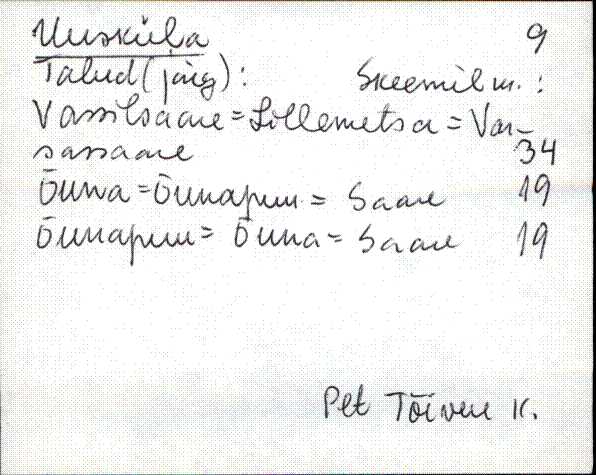 Uusküla 9
Talud (järg): Skeemil nr.:
Vassilsaare = Lillemetsa = Var-
sassaare 34
Õuna = Õunapuu = Saare 19
Õunapuu = Õuna = Saare 19
Pet Tõivere k.